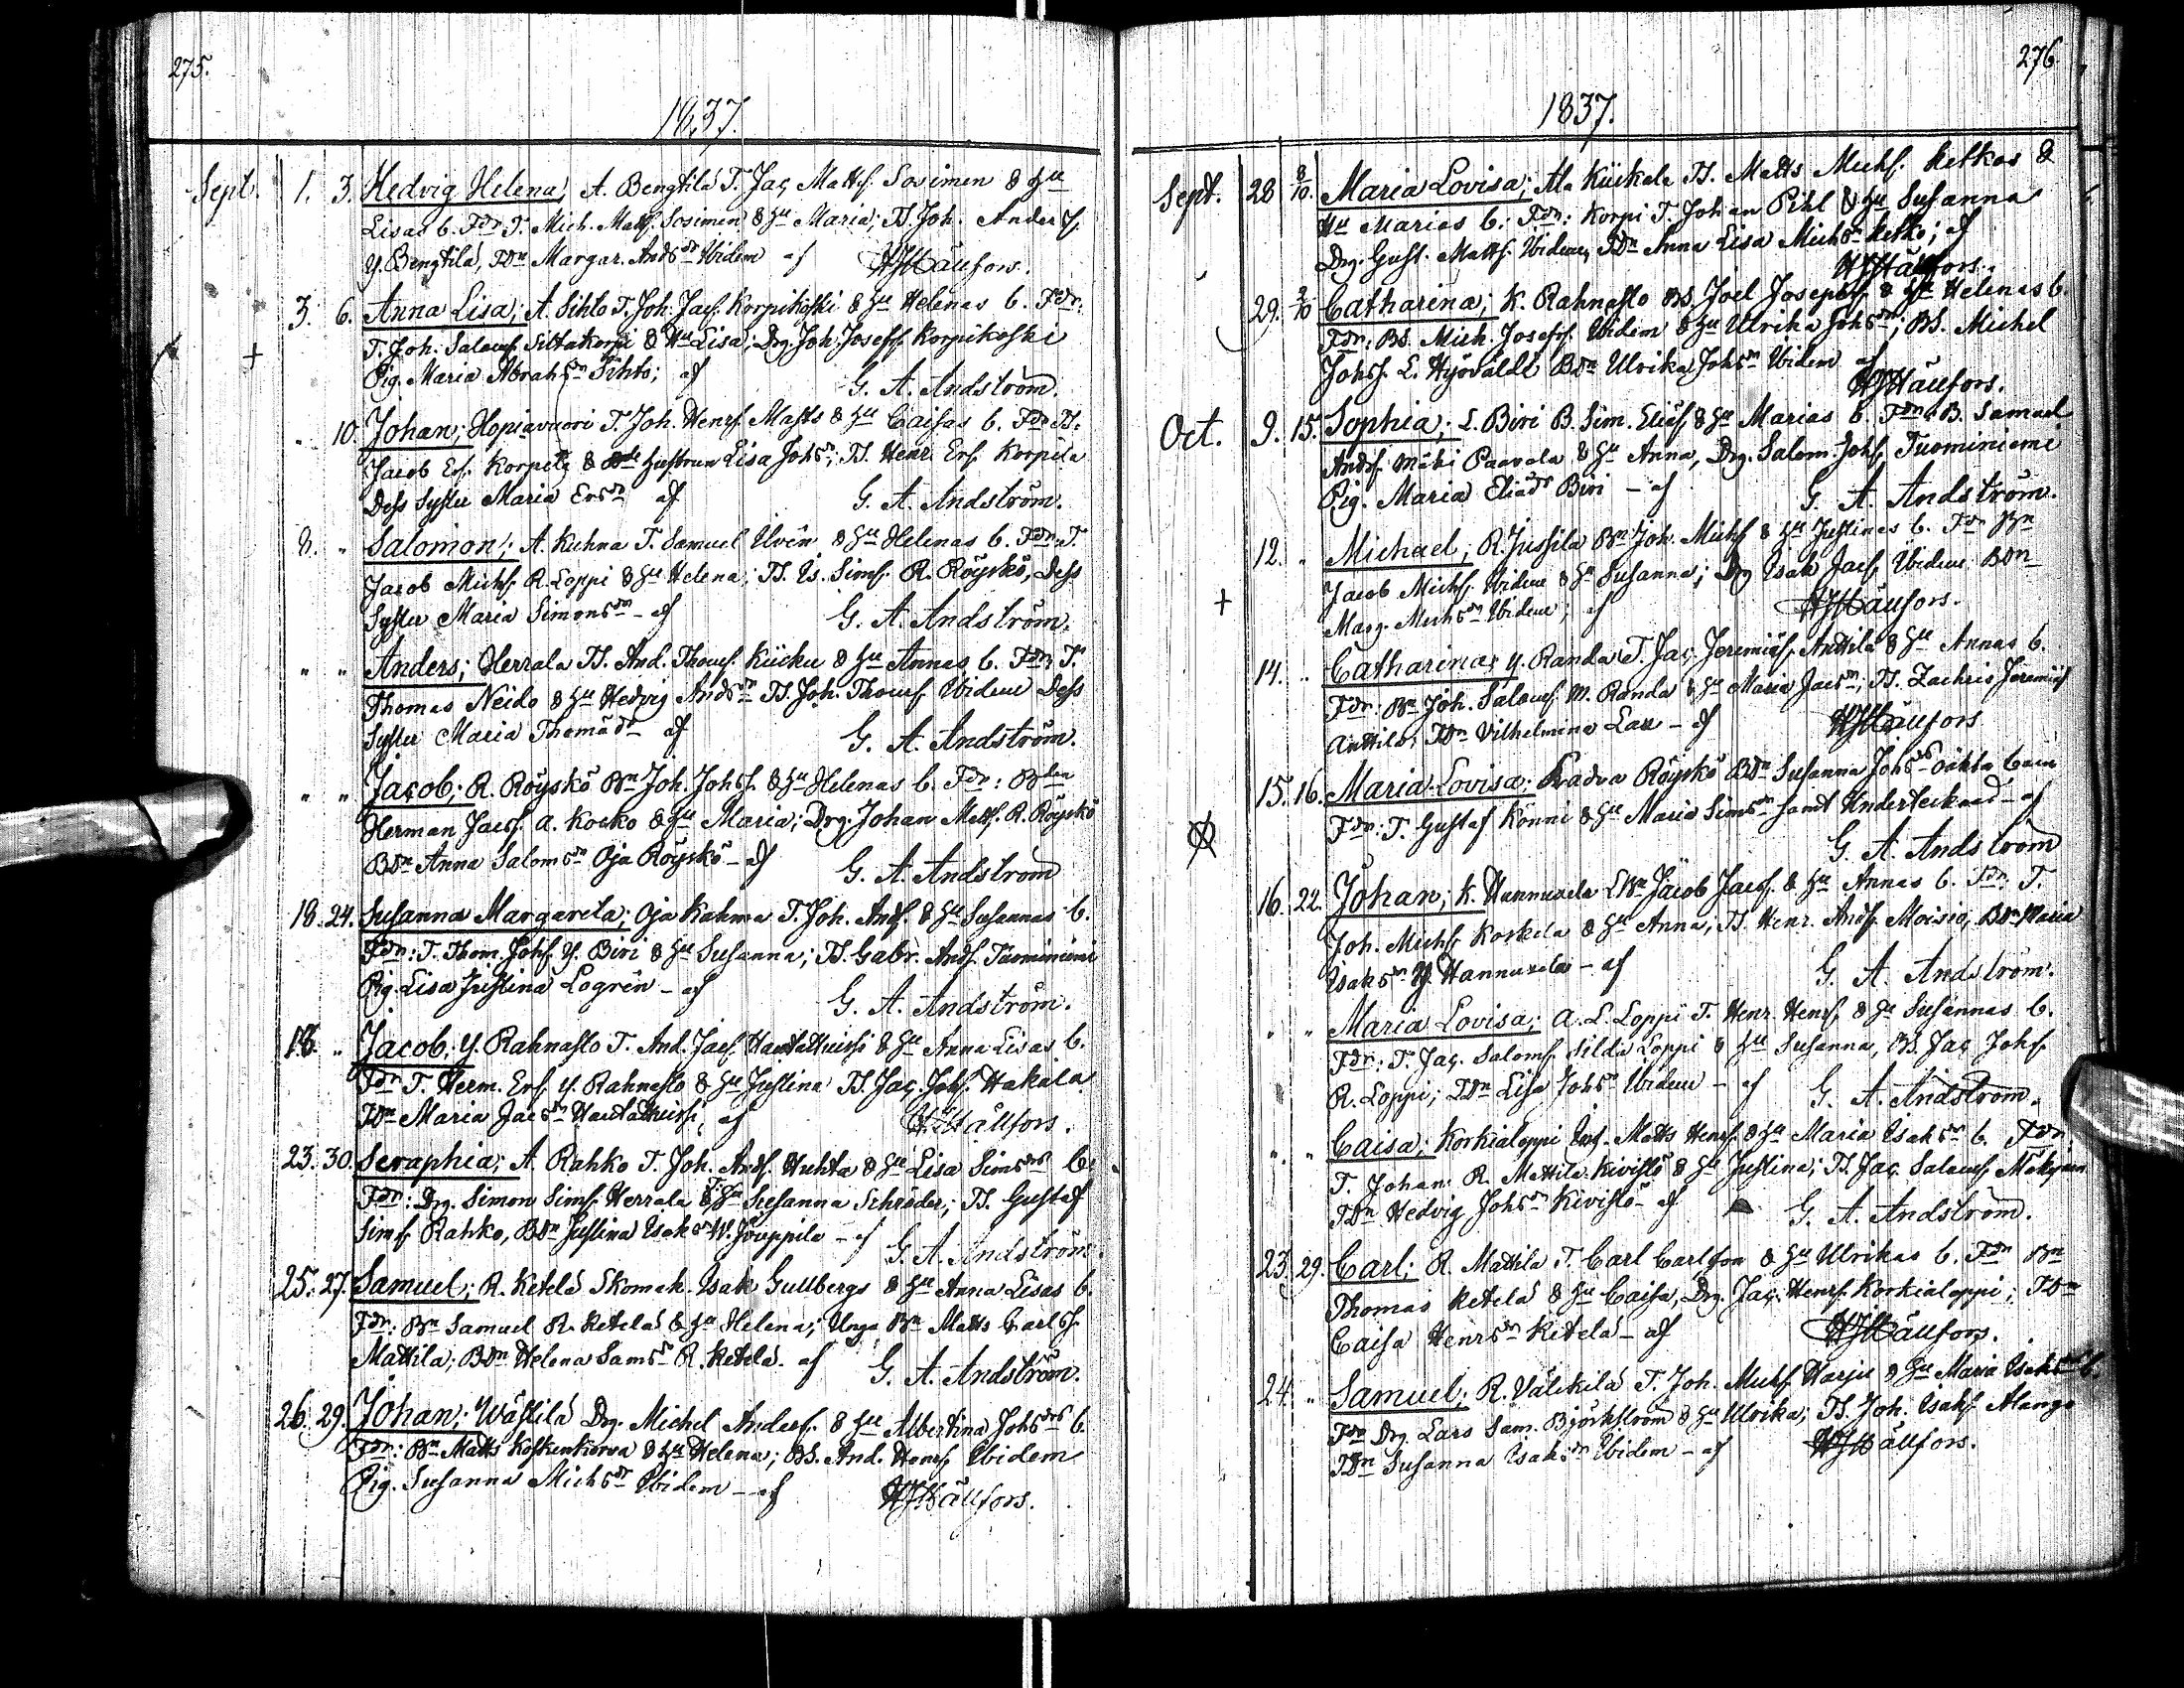 275.
1837.
Sept. 1. 3. Hedvig Helena; A. Bengtilä T. Jac. Mattss. Sosimen & Hu
Lisas b. Fdr T. Mich. Mattss. Sosimen & Hu Maria; TS. Joh. Anderss.
Y. Bengtilä, TDn Margar. Andsdr Ibidem af HJHällfors.
3. 6. Anna Lisa; A. Sihto T. Joh. Jacss. Korpikoski & Hu Helenas b. Fdr:
T. Joh. Salomss. Siltakorpi & Hu Lisa; Drg. Joh. Josefss. Korpikoski
Pig. Maria Abrahsdr Sihto; af G. A. Andström.
" 10. Johan; Hopiavuori T. Joh. Henrss. Matts & Hu Caisas b. Fdr TS.
Jacob Erss. Korpela & Hustrun Lisa Johsdr; TS. Henr. Erss. Korpela
Dess Syster Maria Ersdr af G. A. Andström.
8. " Salomon; A. Kuhna T. Samuel Ulvin & Hu Helenas b. Fdr T.
Jacob Michss. R. Loppi & Hu Helena; TS. Is. Simss. R. Röyskö, Dess
Syster Maria Simonsdr - af G. A. Andström.
" " Anders; Herrala TS. And. Thomss. Kücku & Hu Annas b. Fdr T.
Thomas Neido & Hu Hedvig Andsdr TS. Joh. Thomss. Ibidem Dess
Syster Maria Thomädr af G. A. Andström.
" " Jacob; R. Röyskö Bn Joh. Johss. & Hu Helenas b. Fdr: Bden
Herman Jacss. A. Kocko & Hu Maria; Drg. Johan Mattss. R. Röyskö
BDn Anna Salomsdr Oja Röyskö - af G. A. Andström
18. 24. Susanna Margareta; Oja Kahma T. Joh. Andss. & Hu Susannas b.
Fdr: T. Thom. Johss. Y. Biri & Hu Susanna; TS. Gabr. Andss. Tuominiemi
Pig. Lisa Justina Logrén - af G. A. Andström.
18. " Jacob; Y. Rahnasto T. And. Jacss. & Hu Anna Lisas b.
Fdr T. Herm. Erss. Y. Rahnasto & Hu Justina TS. Jac. Johss. Hakala
TDn Maria Jacsdr af HJHällfors.
23. 30. Seraphia; A. Rahko T. Joh. Andss. Huhta & Hu Lisa Simsdrs b.
Fdr: Drg. Simon Simss. Herrala & Susanna Schroder; TS. Gustaf
Simss. Rahko, BDn Justina Isaksdr W. Jouppila - af G. A. Andström.
25. 27. Samuel; R. Ketelä Skomak. Isak Gullbergs & Hu Anna Lisas b.
Fdr: Bn Samuel R. Ketelä & Hu Helena; Unga Bn Matts Carlss.
Mattila; BDn Helena Samsdr R. Ketelä - af G. A. Andström.
26. 29. Johan; Wästilä Drg. Michel Anderss. & Hu Albertina Johsdrs b.
Fdr: Bn Matts Koskenkorva & Hu Helena; BS. And. Henrss. Ibidem
Pig. Susanna Michsdr Ibidem - af HJHällfors.
276.
1837.
Sept. 28 8/10. Maria Lovisa; Ala Kückala TS. Matts Michss. Ketkos &
Hu Marias b; Fdr: Korpi T. Johan Pihl & Hu Susanna
Drg. Gust. Mattss. Ibidem, TDn Anna Lisa Michsdr Ketko; af
HJHällfors.
29. 2/10 Catharina; K. Rahnasto BS. Joel Josephss. & Hu Helenas b.
Fdr: BS. Mich. Josefss. Ibidem & Hu Ulrika Johsdr; BS. Michel
Johss. L. Hyövälti BDn Ulrika Johsdr Ibidem af
HJHällfors.
Oct. 9. 15. Sophia; L. Biri B. Sim. Eliäss. & Hu Marias b. Fdr B. Samuel
Andss. Mäki Paavola & Hu Anna, Drg. Salom. Johss. Tuominiemi
Pig. Maria Eliädr Biri - af G. A. Andström.
12. " Michael; R. Jussila Bn Joh. Michss. & Hu Justinas b. Fdr Bn
Jacob Michss. Ibidem & Hu Susanna; Drg Isak Jacss. Ibidem BDn
Marg. Michsdr Ibidem; af HJHällfors.
14. " Catharina; Y. Randa T. Jac. Jeremiäss. Anttila & Hu Annas b.
Fdr: Bn Joh. Salomss. M. Randa & Hu Maria Jacsdr; TS. Zachris Jeremiäss
Anttila; TDn Vilhelmina Lax - af HJHällfors
15. 16. Maria Lovisa; Ladva Röyskö BDn Susanna Johsdrs oäkta barn
Fdr: T. Gustaf Könni & Hu Maria Simsdr samt Undertecknad - af
G. A. Andström
16. 22. Johan; K. Hannuxela Jacob Jacss. & Hu Annas b. Fdr T.
Joh. Michss. Koskela & Hu Anna; TS. Henr. Andss. Moisio, BDn Maria
Isaksdr Y. Hannuxela - af G. A. Andström.
" " Maria Lovisa; A. L. Loppi T. Henr. Henrss. & Hu Susannas b.
Fdr: T. Jac. Salomss. Sildä Loppi & Hu Susanna, BS. Jac. Johss.
R. Loppi; TDn Lisa Johsdr Ibidem - af G. A. Andström.
" " Caisa; Korkialoppi Inh. Matts Henrss. & Hu Maria Isaksdr b. Fdr
T. Johan R. Mattila Kivistö & Hu Justina; TS. Jac. Salomss.
TDn Hedvig Johsdr Kivistö - af G. A. Andström.
23. 29. Carl; R. Mattila T. Carl Carlsson & Hu Ulrikas b. Fdr Bn
Thomas Ketelä & Hu Caisa, Drg. Jac. Henrss. Korkialoppi; TDn
Caisa Henrsdr Ketelä - af HJHällfors.
24. " Samuel; R. Välikilä T. Joh. Michss. Harju & Hu Maria Isaksdrs b.
Fdr Drg. Lars Sam. Björkström & Hu Ulrika; TS. Joh. Isakss. Alango
TDn Susanna Isaksdr Ibidem - af HJHällfors.